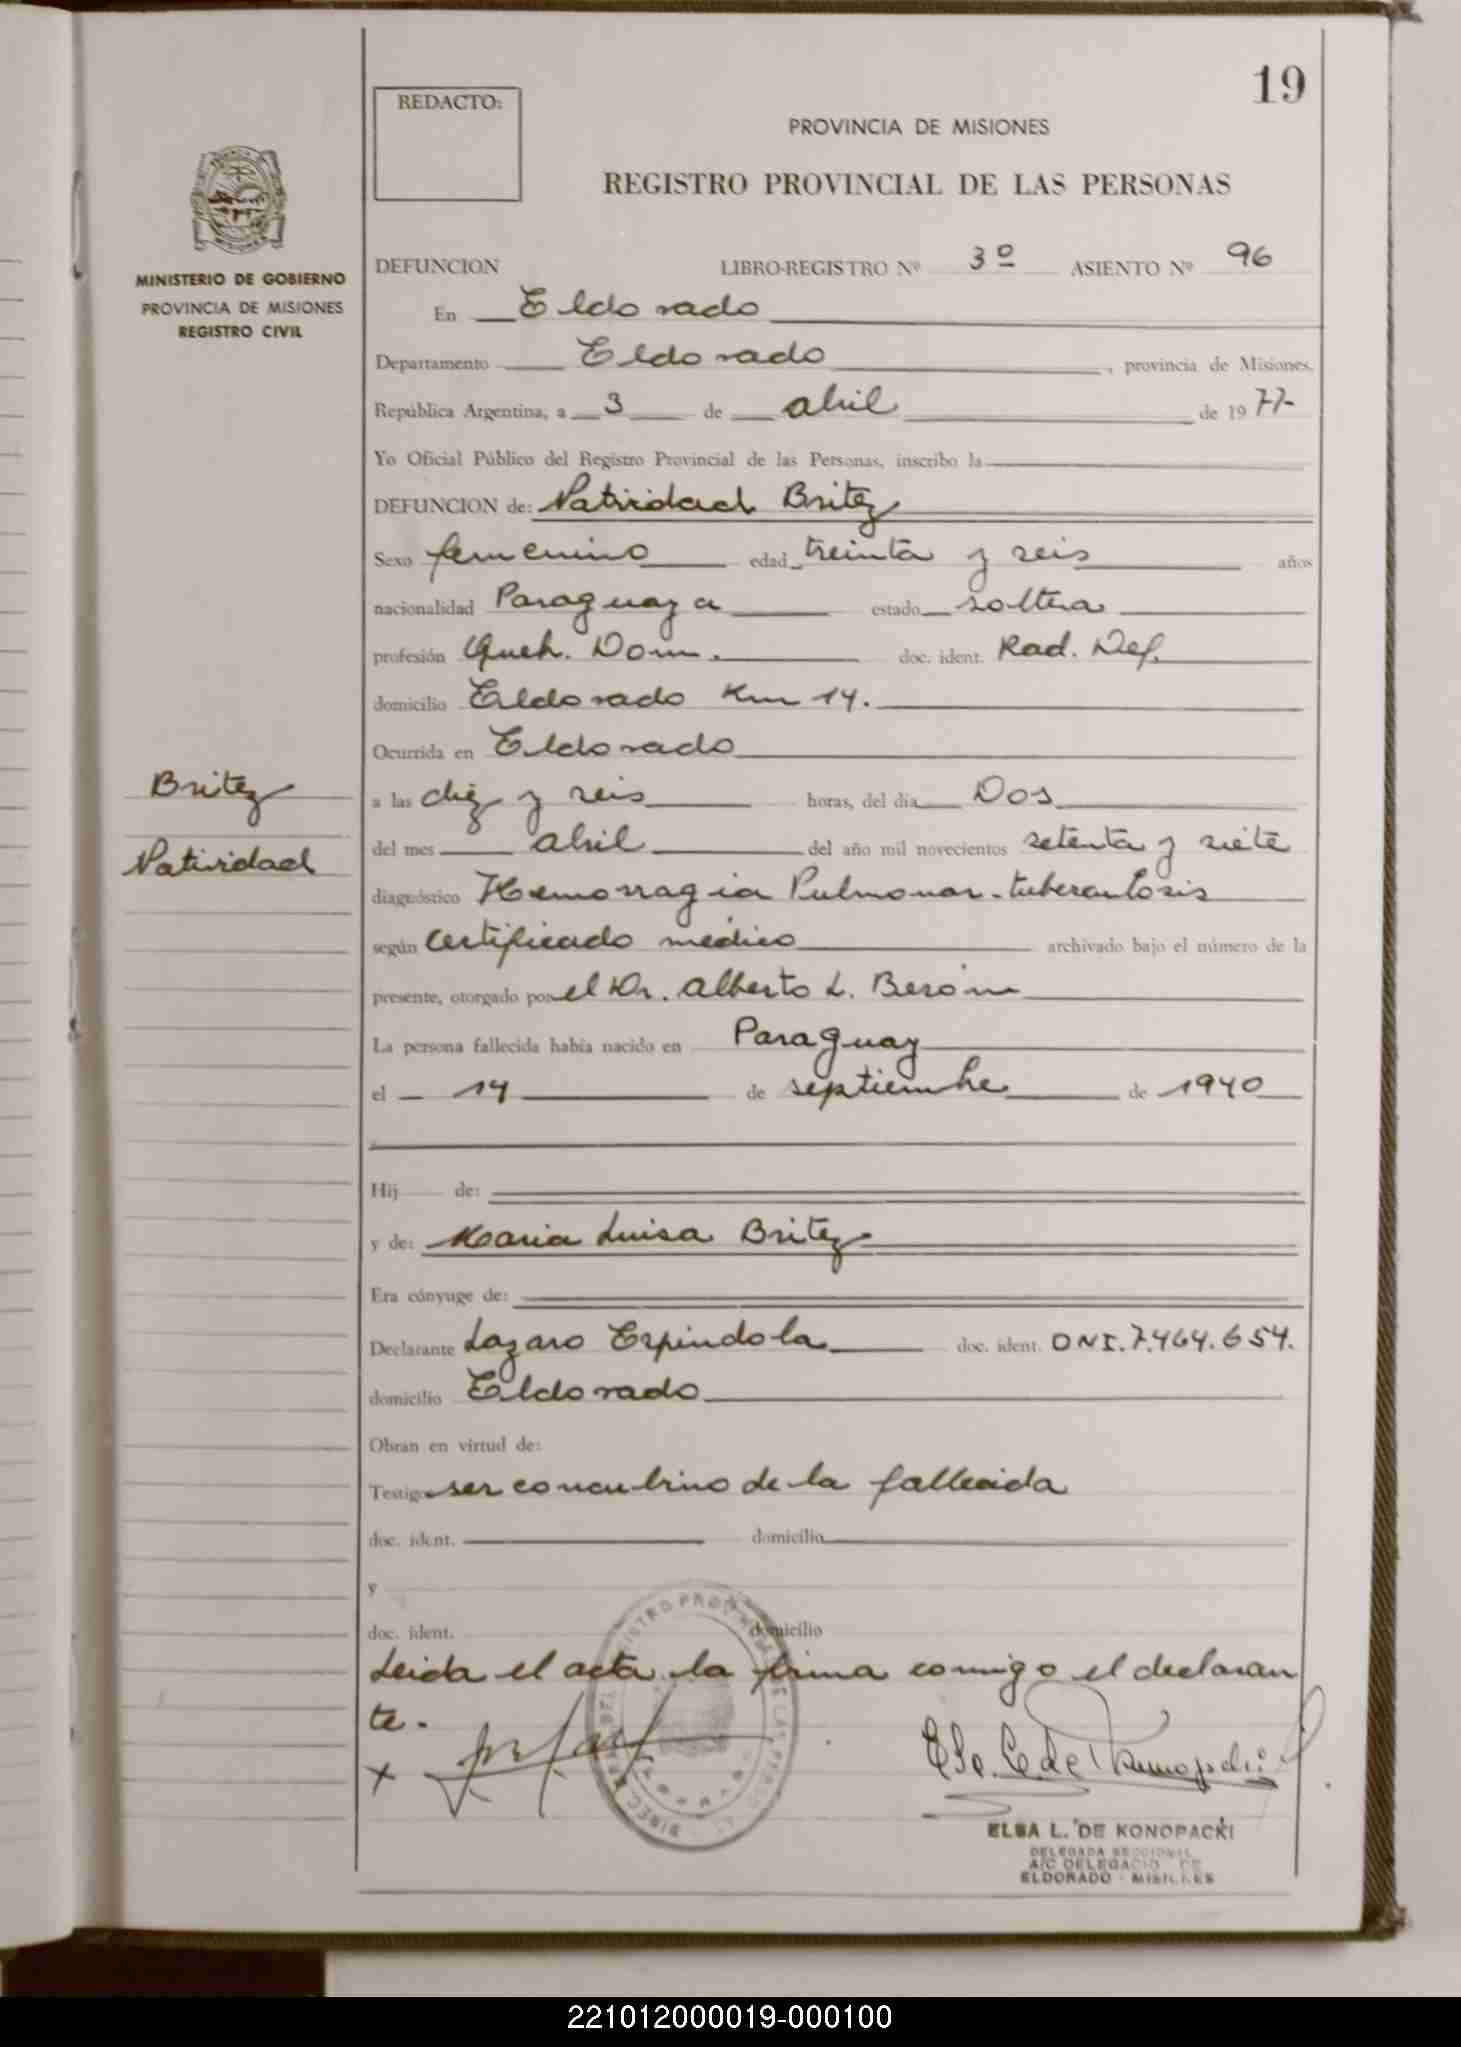 19
REDACTO:
PROVINCIA DE MISIONES
REGISTRO PROVINCIAL DE LAS PERSONAS
MINISTERIO DE GOBIERNO
PROVINCIA DE MISIONES
REGISTRO CIVIL
DEFUNCION LIBRO-REGISTRO Nº 3º ASIENTO Nº 96
En Eldorado
Departamento Eldorado, provincia de Misiones,
República Argentina, a 3 de abril de 1977-
Yo Oficial Público del Registro Provincial de las Personas, inscribo la
DEFUNCION de: Natividad Britez
Sexo femenino edad treinta y seis años
nacionalidad Paraguaya estado soltera
profesión Queh. Dom. doc. ident. Rad. Def.
domicilio Eldorado Km 14.
Ocurrida en Eldorado
Britez
Natividad
a las diez y seis horas, del día Dos
del mes abril del año mil novecientos setenta y siete
diagnóstico Hemorragia Pulmonar-tuberculosis
según certificado médico archivado bajo el número de la
presente, otorgado por el Dr. Alberto L. Berón
La persona fallecida había nacido en Paraguay
el 14 de septiembre de 1940
Hij de:
y de: Maria Luisa Britez
Era cónyuge de:
Declarante Lazaro Espindola doc. ident. DNI. 7.464.654.
domicilio Eldorado
Obran en virtud de:
Testigo ser concubino de la fallecida
doc. ident. domicilio
y
doc. ident. domicilio
Leida el acta la firma comigo el declaran
te.
ELSA L. DE KONOPACKI
DELEGADA SECCIONAL
A/C DELEGACIO DE
ELDORADO - MISIONES
221012000019-000100